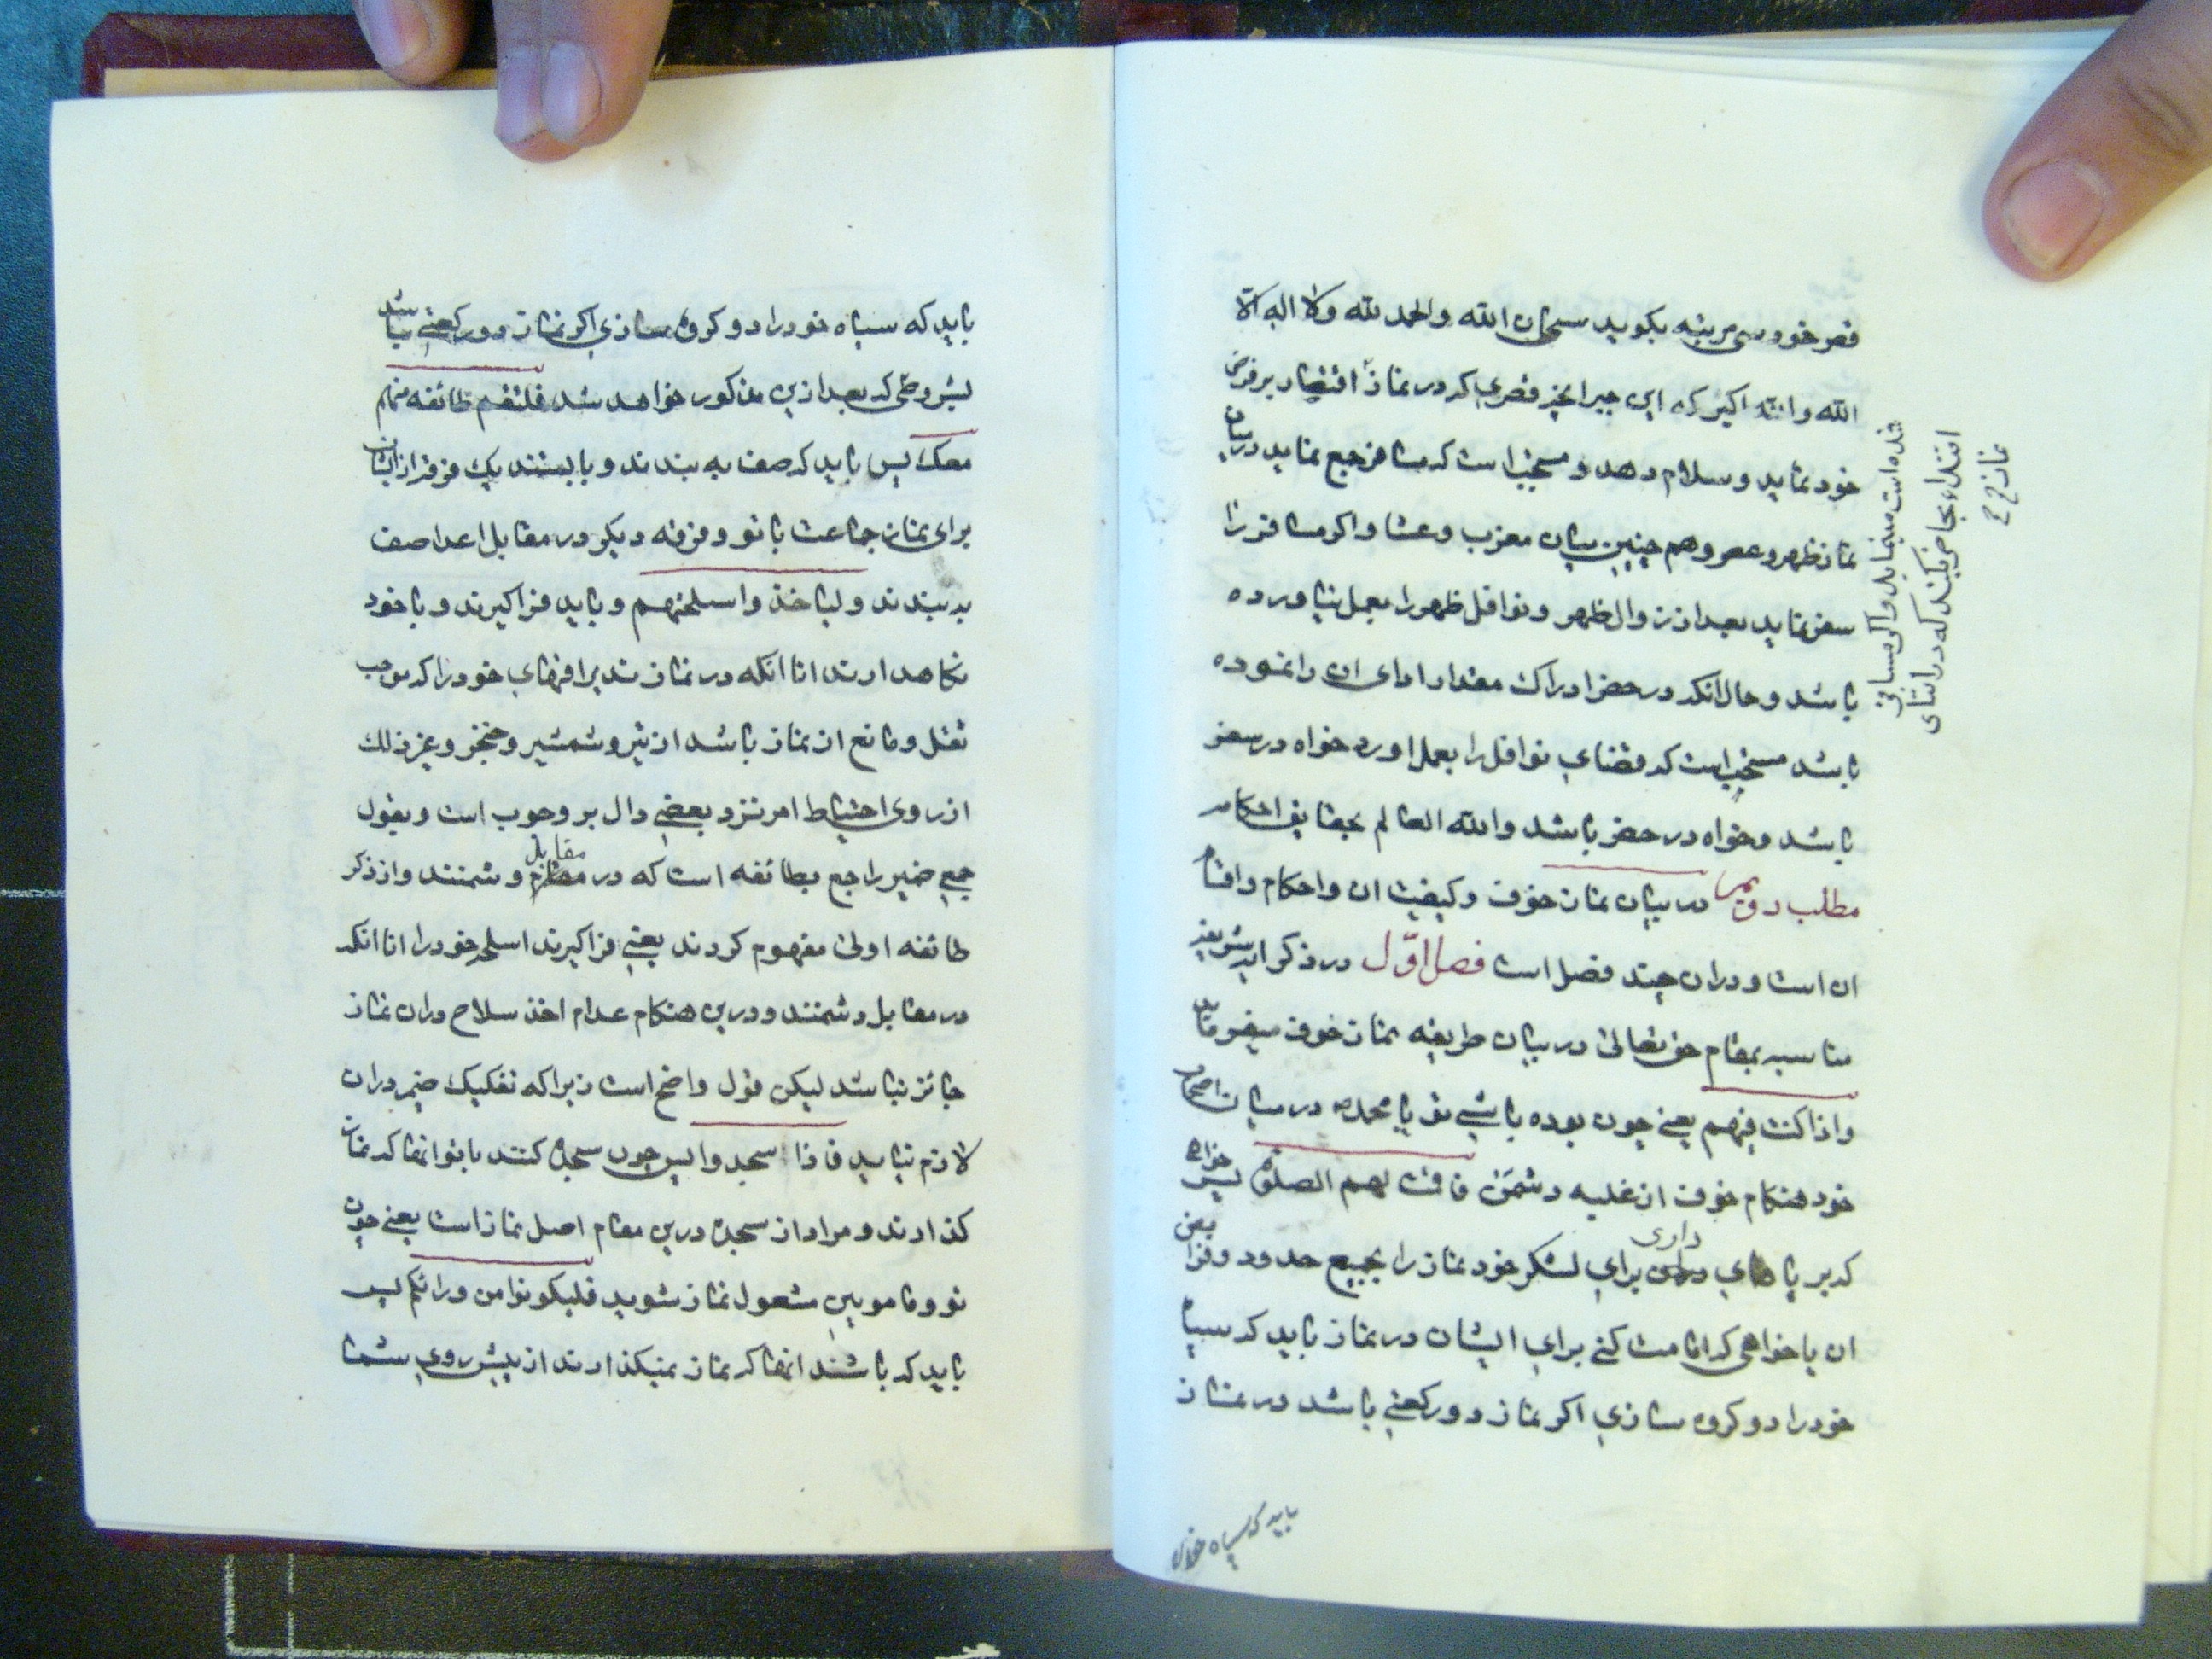 قصر خود سی مرتبه بگوید سبحان الله والحمد لله ولا اله الا
الله والله اکبر که این جبر انچیز قصری که در نماز اقتصار بر فرض
خود نماید وسلام دهد و مستحبست که مسافر جمع نماید در میان
نماز ظهر وعصر وهم چنین میان مغرب وعشا واکر مسافر را
سفر نماید بعد از زوال ظهر ونوافل ظهر را بعمل نیاورده
باشد وحال انکه در حضر ادراک مقدار ادای ان را نموده
باشد مستحب است که قضای نوافل را بعمل اورد خواه در سفر
باشد وخواه در حضر باشد والله العالم بحقایق احکامه
مطلب دویم در بیان نماز خوف وکیفیت ان واحکام واقسام
ان است ودران چند فصل است فصل اوّل در ذکر ایه شریفه
مناسبه بمقام حق تعالی در بیان طریقه نماز خوف میفرماید
واذا کنت فیهم یعنی چون بوده باشی تو یا محمد ص در میان اصحاب
خود هنکام خوف از غلبه دشمن فاقمت لهم الصلوة پس خواهی
که بر پا داری برای لشکر خود نماز را بجمیع حدود وفرایض
ان یا خواهی که امامت کنی برای ایشان در نماز باید که سپاه
خود را دو کروه سازی اکر نماز دو رکعتی باشد در نماز
باید که سپاه خود را
شده است مینماید واکر مسافر
اقتداء بحاضر بکند که در اثنای
نماز
باید که سپاه خود را دو کروه سازی اکر نماز دو رکعتی باشد
بشروطی که بعد ازین مذکور خواهد شد فلتقم طائفه منهم
معک پس باید که صف به بندند وبایستند یک فرقه از ایشان
برای نماز جماعت با تو وفرقه دیکر در مقابل اعدا صف
به بندند ولیاخذوا اسلحتهم وباید فرا کیرند وبا خود
نکاهدارند انا انکه در نمازند یراقهای خود را که موجب
ثقل ومانع از نماز باشد از تیر وشمشیر وخنجر وغیر ذلک
از روی احتیاط امر نزد بعضی دال بر وجوب است وبقول
جمعی ضمیر راجع بطائفه است که در مقابل دشمنند واز ذکر
طائفه اولی مفهوم کردند یعنی فرا کیرند اسلحه خود را انا انکه
در مقابل دشمنند ودرین هنکام عدام اخذ سلاح دران نماز
جائز نباشد لیکن قول واضح است زیرا که تفکیک ضمیر دران
لازم نیاید فاذا سجدوا پس چون سجده کنند با تو انها که نماز
کذارند ومراد از سجده درین مقام اصل نماز است یعنی چون
تو ومامومین مشغول نماز شوید فلیکونوا من ورائکم پس
باید که باشند انها که نماز نمیکذارند از پیش روی شما